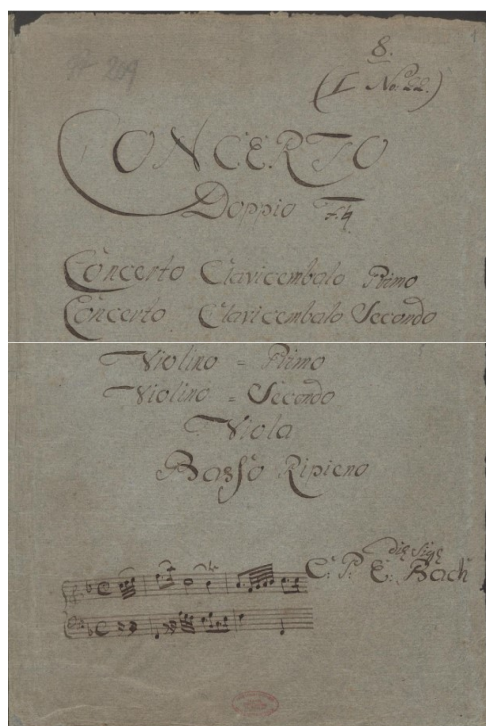 8.
(L No. 22.)
CONCERTO
Doppio F.♮
Concerto Clavicembalo Primo
Concerto Clavicembalo Secondo
Violino = Primo
Violino = Secondo
Viola
Basso Ripieno
C. P. E. Bach